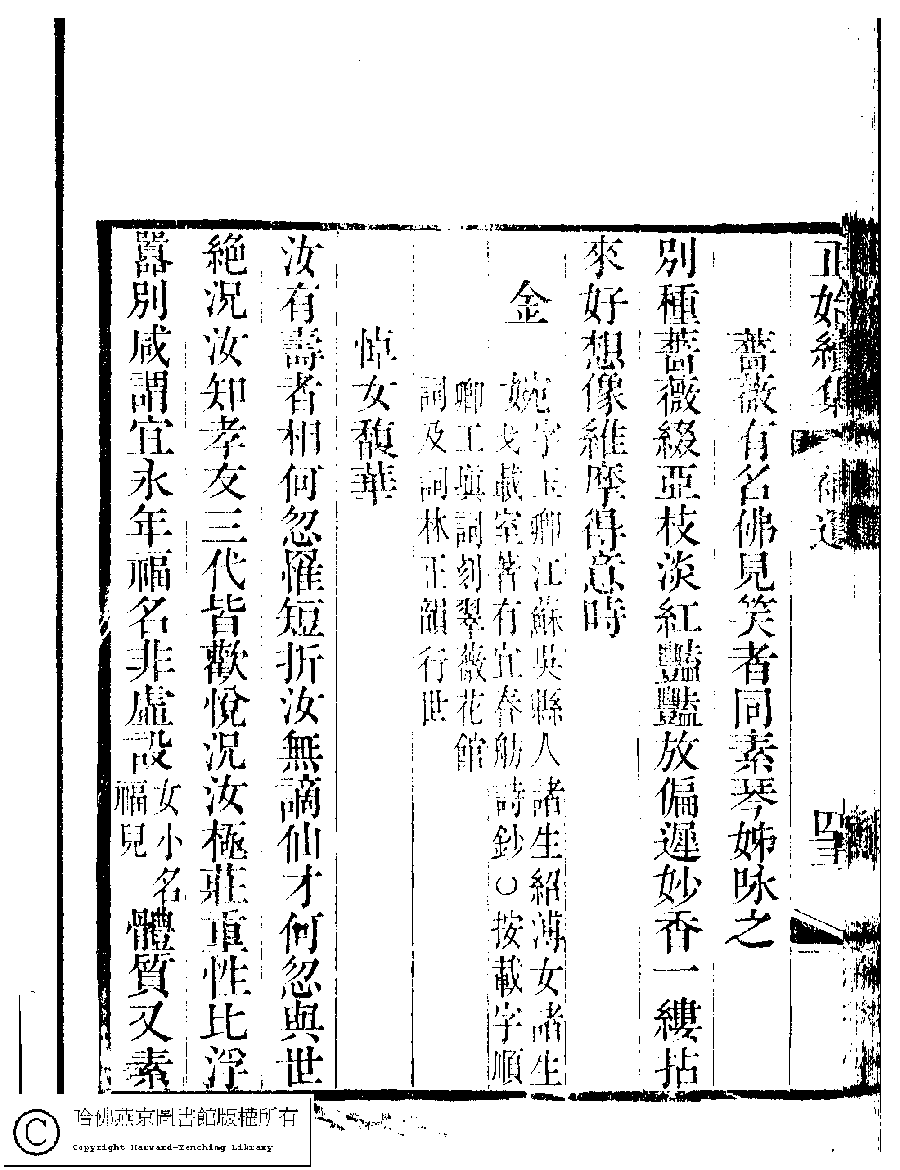 正始續集 補遺
薔薇有名佛見笑者同素琴姊咏之
別種薔薇綴亞枝淡紅豔豔放偏遲妙香一縷拈
來好想像維摩得意時
金婉
字玉卿江蘇吳縣人諸生紹溥女諸生
戈載室著有宜春舫詩鈔○按載字順
卿工填詞刻翠薇花館
詞及詞林正韻行世
悼女馥華
汝有壽者相何忽罹短折汝無謫仙才何忽與世
絕況汝知孝友三代皆歡悅況汝極莊重性比浮
囂別咸謂宜永年福名非虛設女小名福兒體質又素
哈佛燕京圖書館版權所有
Copyright Harvard-Yenching Library